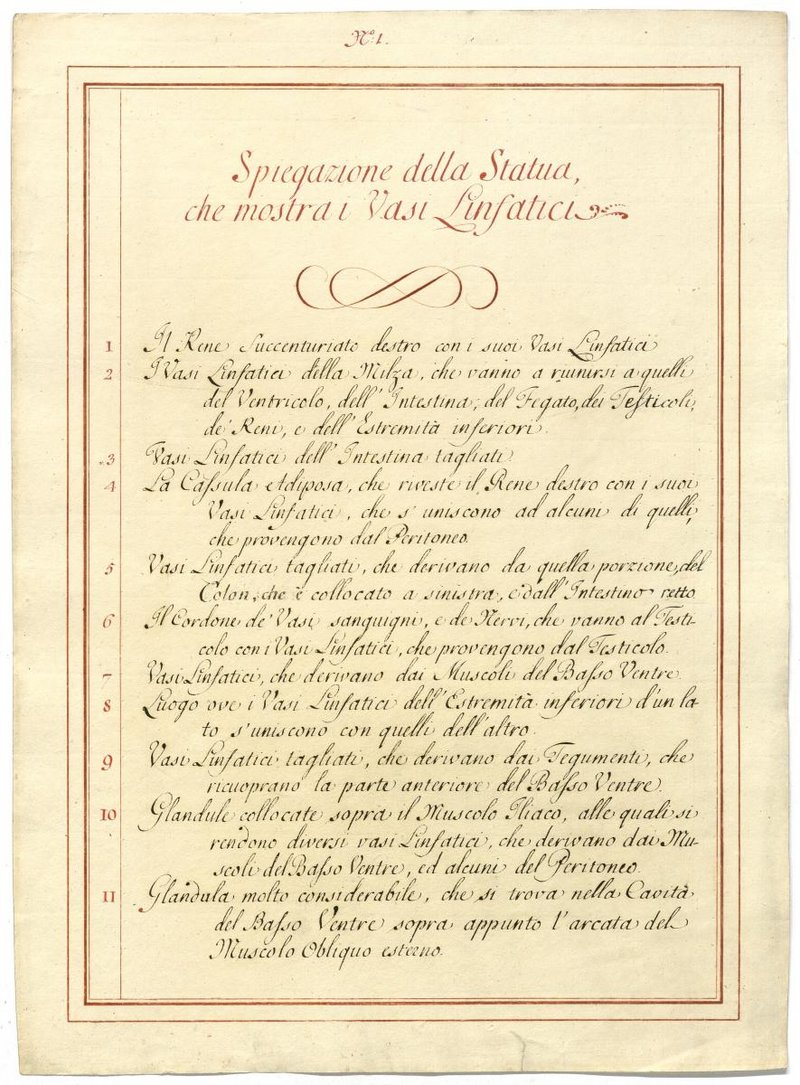 Nº. 1.
Spiegazione della Statua,
che mostra i Vasi Linfatici
1 Il Rene Succenturiato destro con i suoi Vasi Linfatici
2 I Vasi Linfatici della Milza, che vanno a riunirsi a quelli
del Ventricolo, dell' Intestina, del Fegato, dei Testicoli,
de' Reni, e dell' Estremità inferiori.
3 Vasi Linfatici dell' Intestina tagliati
4 La Cassula Adiposa, che riveste il Rene destro con i suoi
Vasi Linfatici, che s' uniscono ad alcuni di quelli,
che provengono dal Peritoneo.
5 Vasi Linfatici tagliati, che derivano da quella porzione, del
Colon, che è collocato a sinistra, e dall' Intestino retto
6 Il Cordone de' Vasi sanguigni, e de Nervi, che vanno al Testi-
colo con i Vasi Linfatici, che provengono dal Testicolo.
7 Vasi Linfatici, che derivano dai Muscoli del Basso Ventre.
8 Luogo ove i Vasi Linfatici dell' Estremità inferiori d'un la-
to s'uniscono con quelli dell'altro.
9 Vasi Linfatici tagliati, che derivano dai Tegumenti, che
ricuoprano la parte anteriore del Basso Ventre.
10 Glandule collocate sopra il Muscolo Iliaco, alle quali si
rendono diversi vasi Linfatici, che derivano dai Mu-
scoli del Basso Ventre, ed alcuni del Peritoneo.
11 Glandula molto considerabile, che si trova nella Cavità
del Basso Ventre sopra appunto l'arcata del
Muscolo Obliquo esterno.